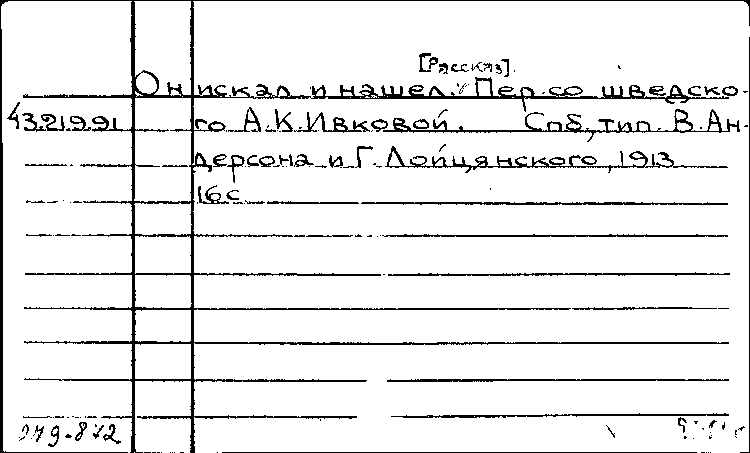 [Рассказ].
Он искал и нашел. Пер. со шведско-
43.219.91 го А.К.Ивковой. Спб, тип. В. Ан-
дерсона и Г. Лойцянского, 1913
16 с
249-872